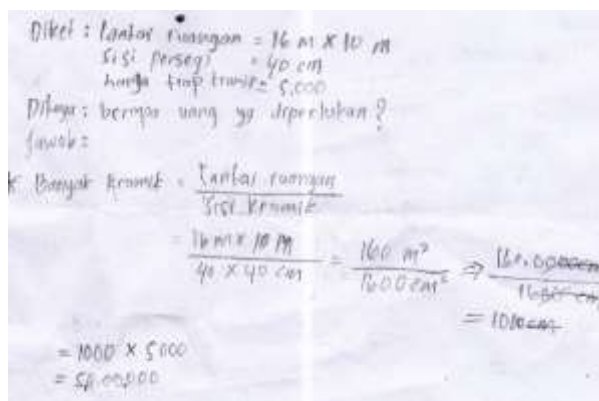 Diket : Lantai ruangan = 16 m X 10 m
Sisi persegi = 40 cm
harga tiap kramik = 5.000
Ditanya : berapa uang yg diperlukan ?
Jawab :
Banyak kramik = Lantai ruangan / Sisi kramik
= 16 m x 10 m / 40 X 40 cm = 160 m² / 1600 cm² ⇒
= 1000 cm
= 1000 X 5000